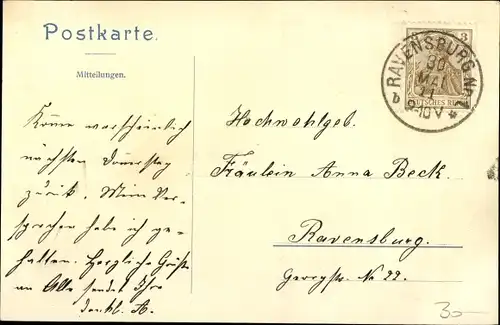 Postkarte.
Mitteilungen.
Komme warscheinlich
nächsten Donerstag
zurük. Mein Ver-
sprechen habe ich ge-
halten. Herzliche Grüße
an Alle sendet Ihre
dankb. A.
RAVENSBURG Nr. 1
30
MAI
11
9-10V
b
3
DEUTSCHES REICH
Hochwohlgeb.
Fräulein Anna Beck.
Ravensburg.
Georgstr. No 22.
30-